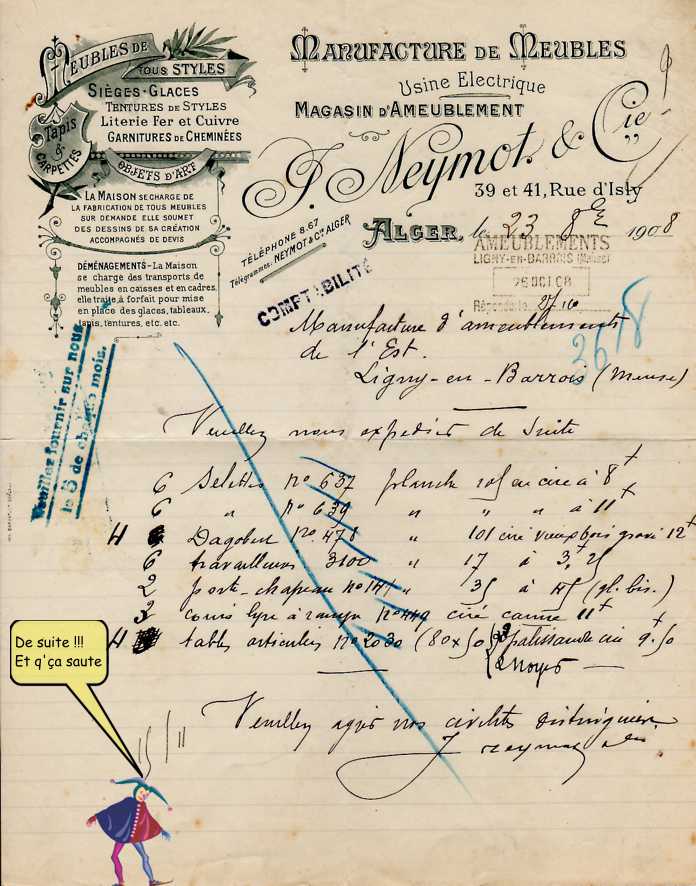 MEUBLES DE
TOUS STYLES
SIÈGES-GLACES
TENTURES DE STYLES
LITERIE FER ET CUIVRE
GARNITURES DE CHEMINÉES
Tapis
&
CARPETTES
OBJETS D'ART
LA MAISON SE CHARGE DE
LA FABRICATION DE TOUS MEUBLES
SUR DEMANDE ELLE SOUMET
DES DESSINS DE SA CRÉATION
ACCOMPAGNÉS DE DEVIS
DÉMÉNAGEMENTS-La Maison
se charge des transports de
meubles en caisses et en cadres,
elle traite à forfait pour mise
en place des glaces, tableaux,
tapis, tentures, etc. etc.
MANUFACTURE DE MEUBLES
Usine Electrique
MAGASIN D'AMEUBLEMENT
J. Neymot & Cie
39 et 41, Rue d'Isly
ALGER, le 23 8bre 1908
TÉLÉPHONE 8.67
Télégrammes: NEYMOT & Cie ALGER
COMPTABILITÉ
AMEUBLEMENTS
LIGNY-EN-BARROIS (Meuse)
26 OCT 08
Répondu le 27/10
2618
Manufacture d'ameublements
de l'Est.
Ligny-en-Barrois (Meuse)
Veuillez fournir sur nous
le 5 de chaque mois.
Veuillez nous expédier de suite
6 Selettes no 637 planche 105 en ciré à 8
6 " no 639 " " " à 11
4 Dagobert no 478 " 101 ciré vieux bois gravé 12
6 travailleuses 3100 " 17 à 3,25
2 porte-chapeau no 147 " 35 à 45 (gl. bis.)
3 no 449 ciré canné 11
4 tables articulées no 2030 (80x50) palissandre ciré 9.50
2 Noyer
Veuillez agréer nos civilités distinguées
J Neymot & Cie
15/11
De suite !!!
Et q'ça saute